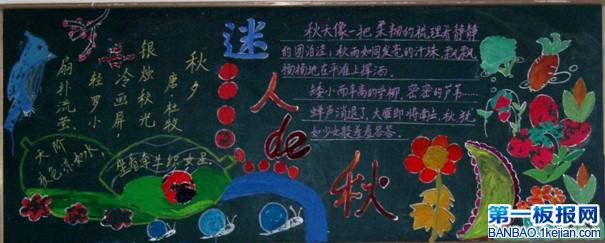 迷人de秋
秋夕
唐 杜牧
银烛秋光
冷画屏
轻罗小
扇扑流萤
天阶
夜色凉如水
坐看牵牛织女星
秋天像一把柔韧的梳理着静静
的团泊洼；秋雨如同发亮的汗珠，飘飘
扬扬地在平滩上挥洒。
矮小而年高的垂柳，密密的芦苇……
蝉声消退了，大雁即将南去，秋，犹
如少女般羞羞答答。
第一板报网
BANBAO.1kejian.com